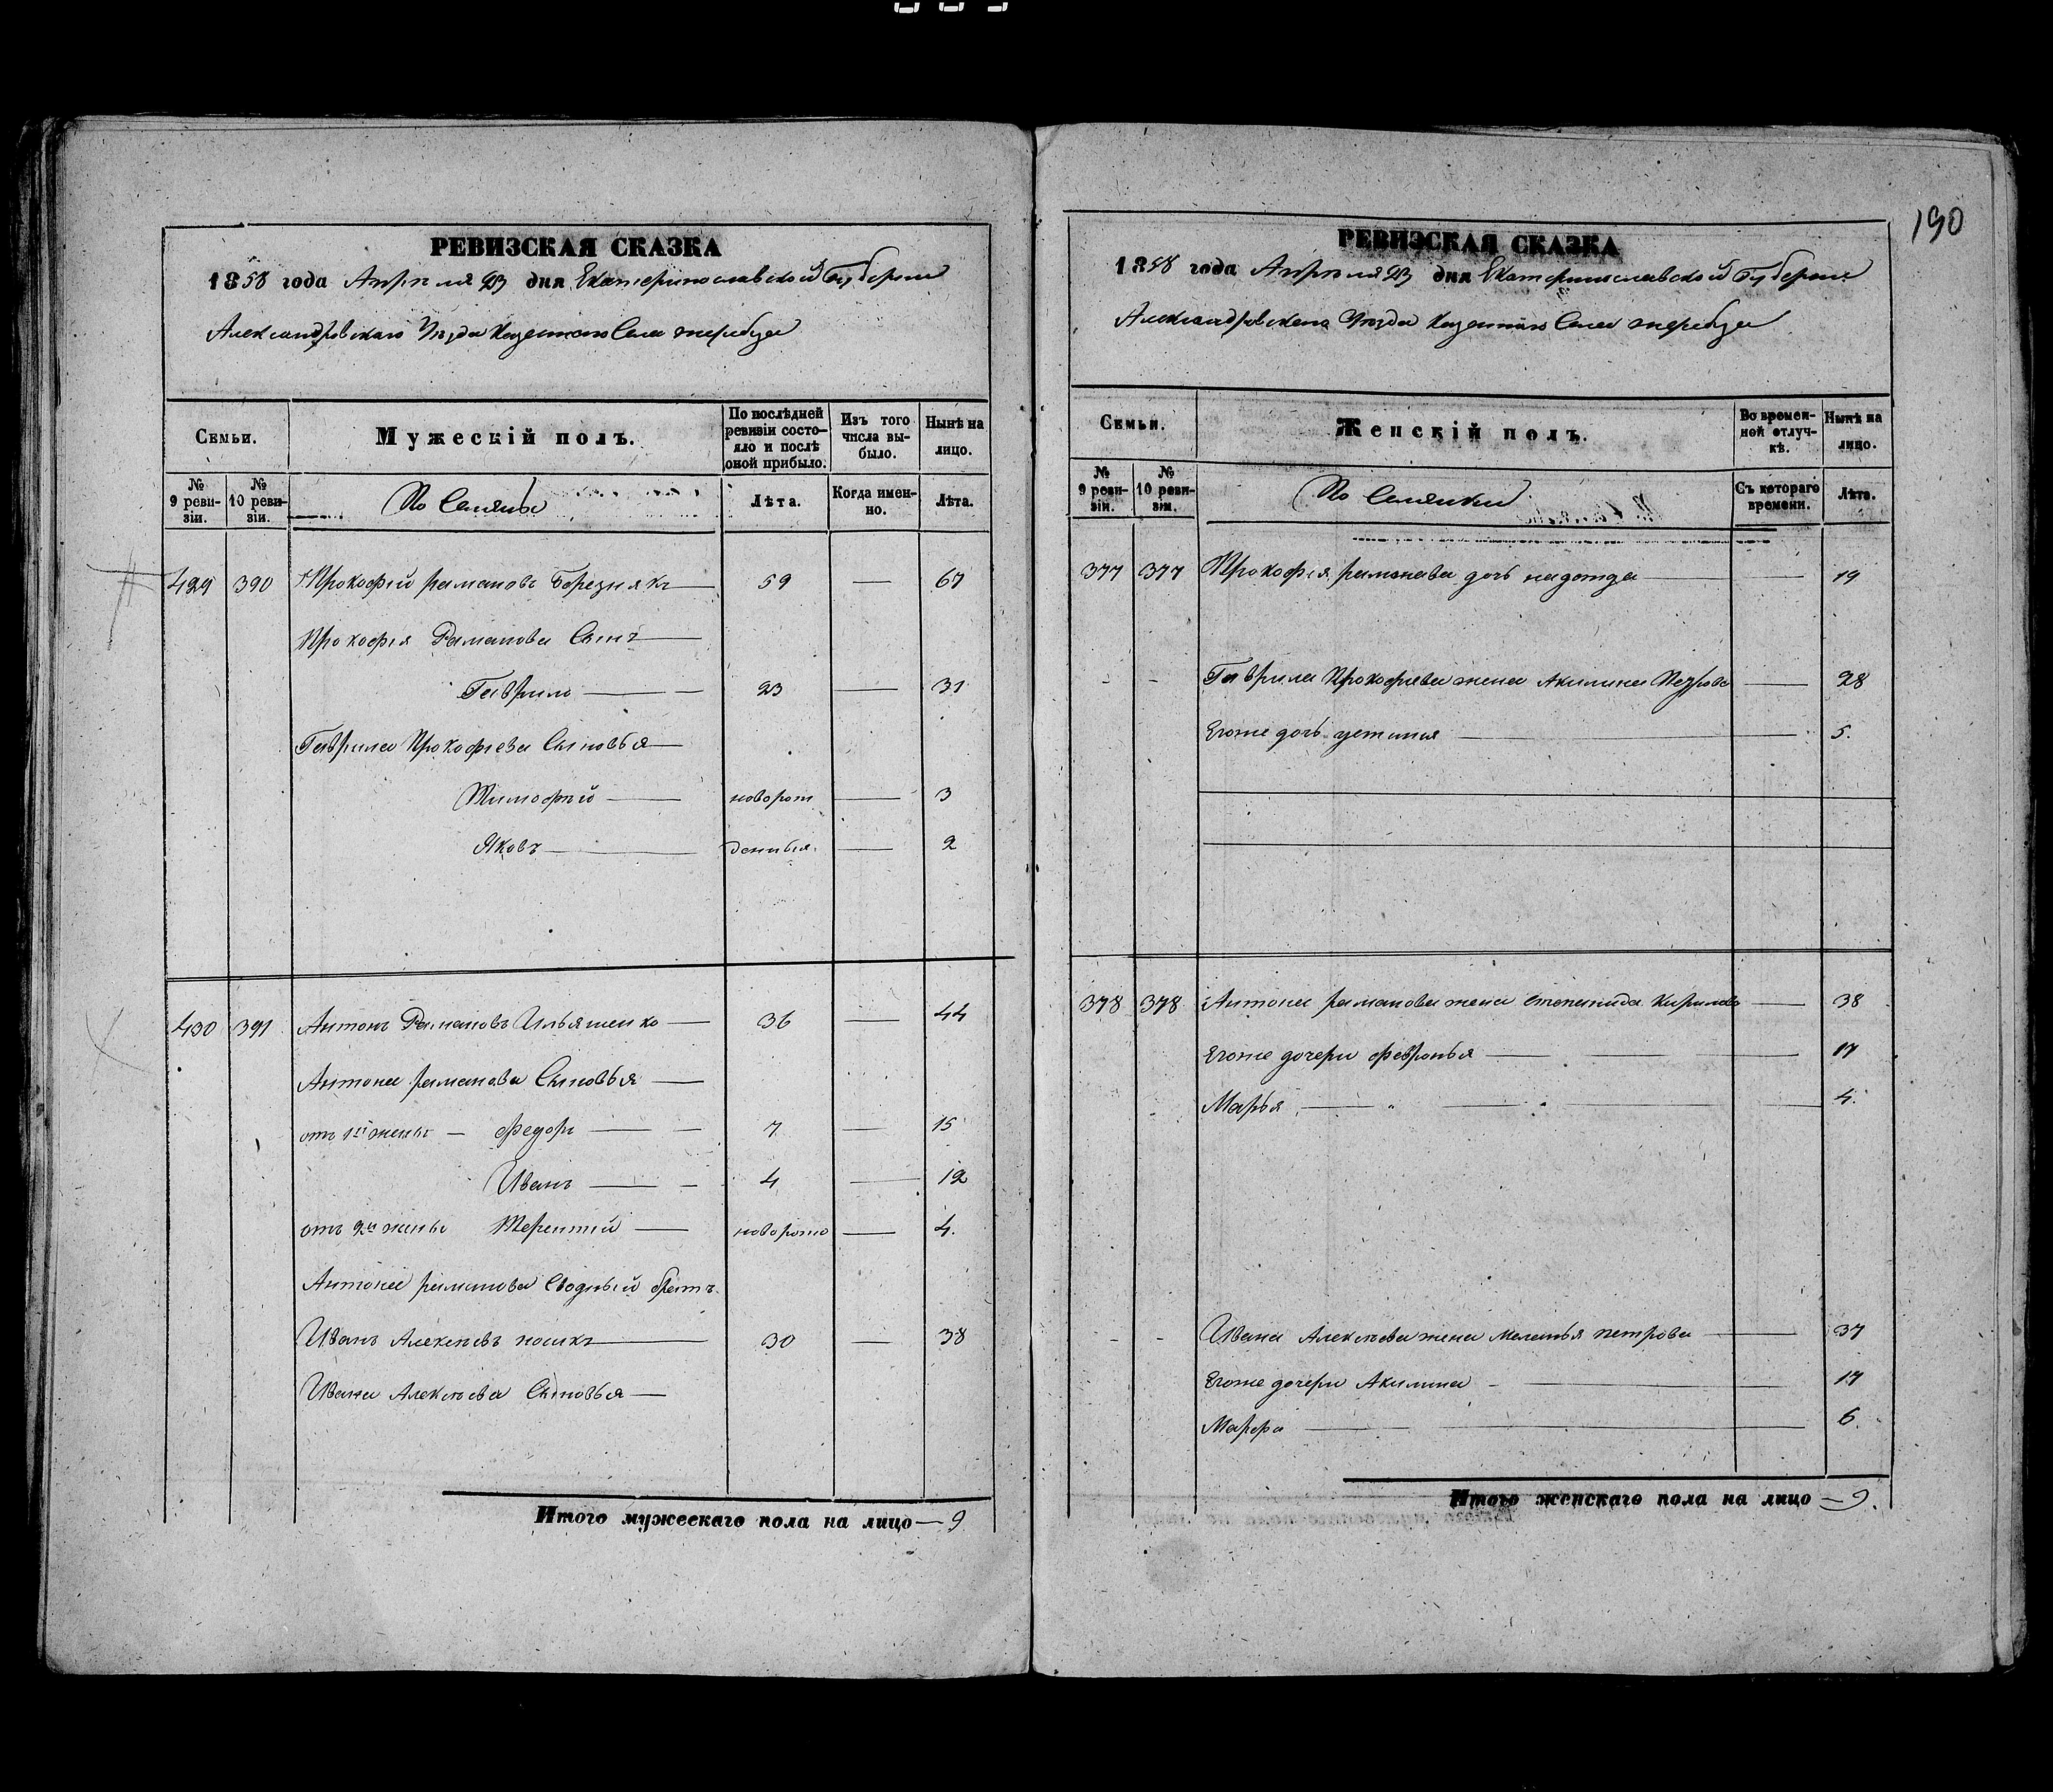 190
РЕВИЗСКАЯ СКАЗКА
1858 года Апрѣля 23 дня Екатеринославской Губернiи
Александровскаго Уѣзда Казеннаго Села жеребца
Семьи.
Мужескій полъ.
По послѣдней ревизіи состояло и послѣ оной прибыло.
Изъ того числа выбыло.
Нынѣ на лицо.
№ 9 ревизіи.
№ 10 ревизіи.
Лѣта.
Когда именно.
Лѣта.
429 390 Прокофій рамановъ Березнякъ 59 — 67
Прокофія Раманова Сынъ
Гаврило 23 — 31
Гаврила Прокофіева Сыновья
Тимофѣй новорож — 3
Яковъ денныя — 2
430 391 Антонъ Рамановъ Ильяшенко 36 — 44
Антона раманова Сыновья
отъ 1й жены — Федоръ 7 — 15
Иванъ 4 — 12
отъ 2й жены Терентій новорожд — 4.
Антона раманова Сводный братъ
Иванъ Алексѣевъ 30 — 38
Ивана Алексѣева Сыновья
Итого мужескаго пола на лицо — 9
РЕВИЗСКАЯ СКАЗКА
1858 года Апрѣля 23 дня Екатеринославской Губернiи
Александровскаго Уѣзда Казеннаго Села жеребца
Семьи.
Женскій полъ.
Во временной отлучкѣ.
Нынѣ на лицо.
№ 9 ревизіи.
№ 10 ревизіи.
Съ котораго времени.
Лѣта.
377 377 Прокофія раманава дочь надожда — 19
Гаврила Прокофіева жена Акилина Петрова — 28
Егоже дочь устинія — 5.
378 378 Антона раманова жена степанида Кирилова — 38
Егоже дочери февронья — 17
Марья — 4.
Ивана Алексѣева жена меланья петрова — 37
Егоже дочери Акилина — 17
Марфа — 6.
Итого женскаго пола на лицо — 9.